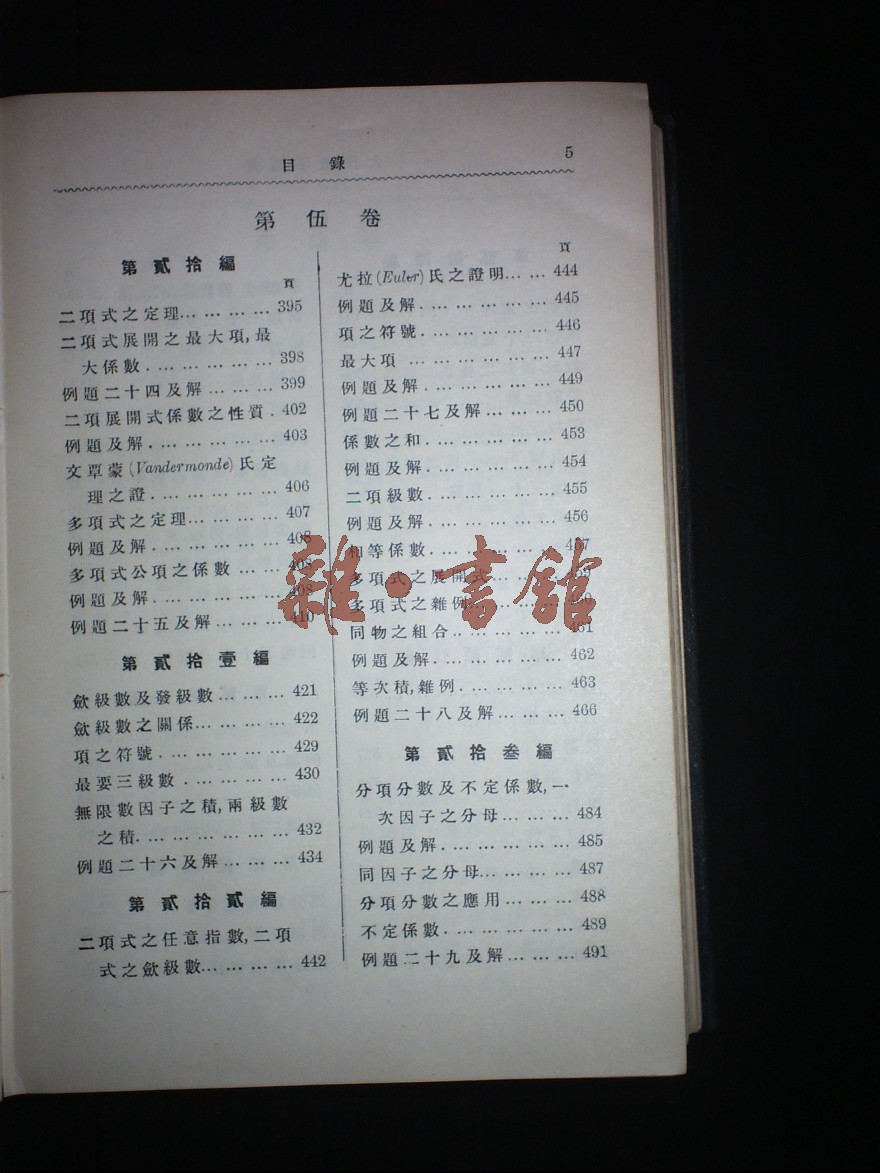 目錄 5
第伍卷
第貳拾編
頁
二項式之定理... ... ... ... 395
二項式展開之最大項,最
大係數. ... ... ... ... ... 398
例題二十四及解 ... ... ... 399
二項展開式係數之性質. 402
例題及解. ... ... ... ... ... 403
文覃蒙(Vandermonde)氏定
理之證. ... ... ... ... ... 406
多項式之定理... ... ... ... 407
例題及解. ... ... ... ... ... 408
多項式公項之係數 ... ... 408
例題及解. ... ... ... ... ... 408
例題二十五及解 ... ... ... 410
第貳拾壹編
歛級數及發級數 ... ... ... 421
歛級數之關係... ... ... ... 422
項之符號. ... ... ... ... ... 429
最要三級數. ... ... ... ... 430
無限數因子之積,兩級數
之積. ... ... ... ... ... ... 432
例題二十六及解 ... ... ... 434
第貳拾貳編
二項式之任意指數,二項
式之歛級數... ... ... ... 442
頁
尤拉(Euler)氏之證明... ... 444
例題及解. ... ... ... ... ... 445
項之符號. ... ... ... ... ... 446
最大項 ... ... ... ... ... ... 447
例題及解. ... ... ... ... ... 449
例題二十七及解 ... ... ... 450
係數之和. ... ... ... ... ... 453
例題及解. ... ... ... ... ... 454
二項級數. ... ... ... ... ... 455
例題及解. ... ... ... ... ... 456
相等係數. ... ... ... ... ... 457
多項式之展開式... ... ...
多項式之雜例... ... ... ...
同物之組合.. ... ... ... ... 461
例題及解. ... ... ... ... ... 462
等次積,雜例. ... ... ... ... 463
例題二十八及解 ... ... ... 466
第貳拾叁編
分項分數及不定係數,一
次因子之分母... ... ... 484
例題及解. ... ... ... ... ... 485
同因子之分母... ... ... ... 487
分項分數之應用... ... ... 488
不定係數. ... ... ... ... ... 489
例題二十九及解 ... ... ... 491
雜·書館